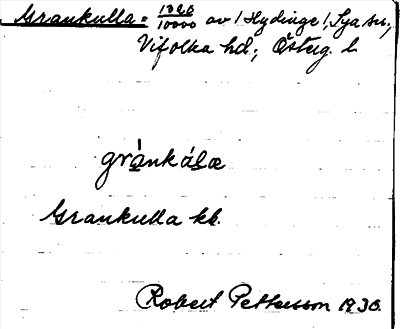 Grankulla = 1320/10000 av Hydinge, Sya sn;
Vifolka hd; Österg. l.
gránkálæ
Grankulla kl.
Robert Pettersson 1930.